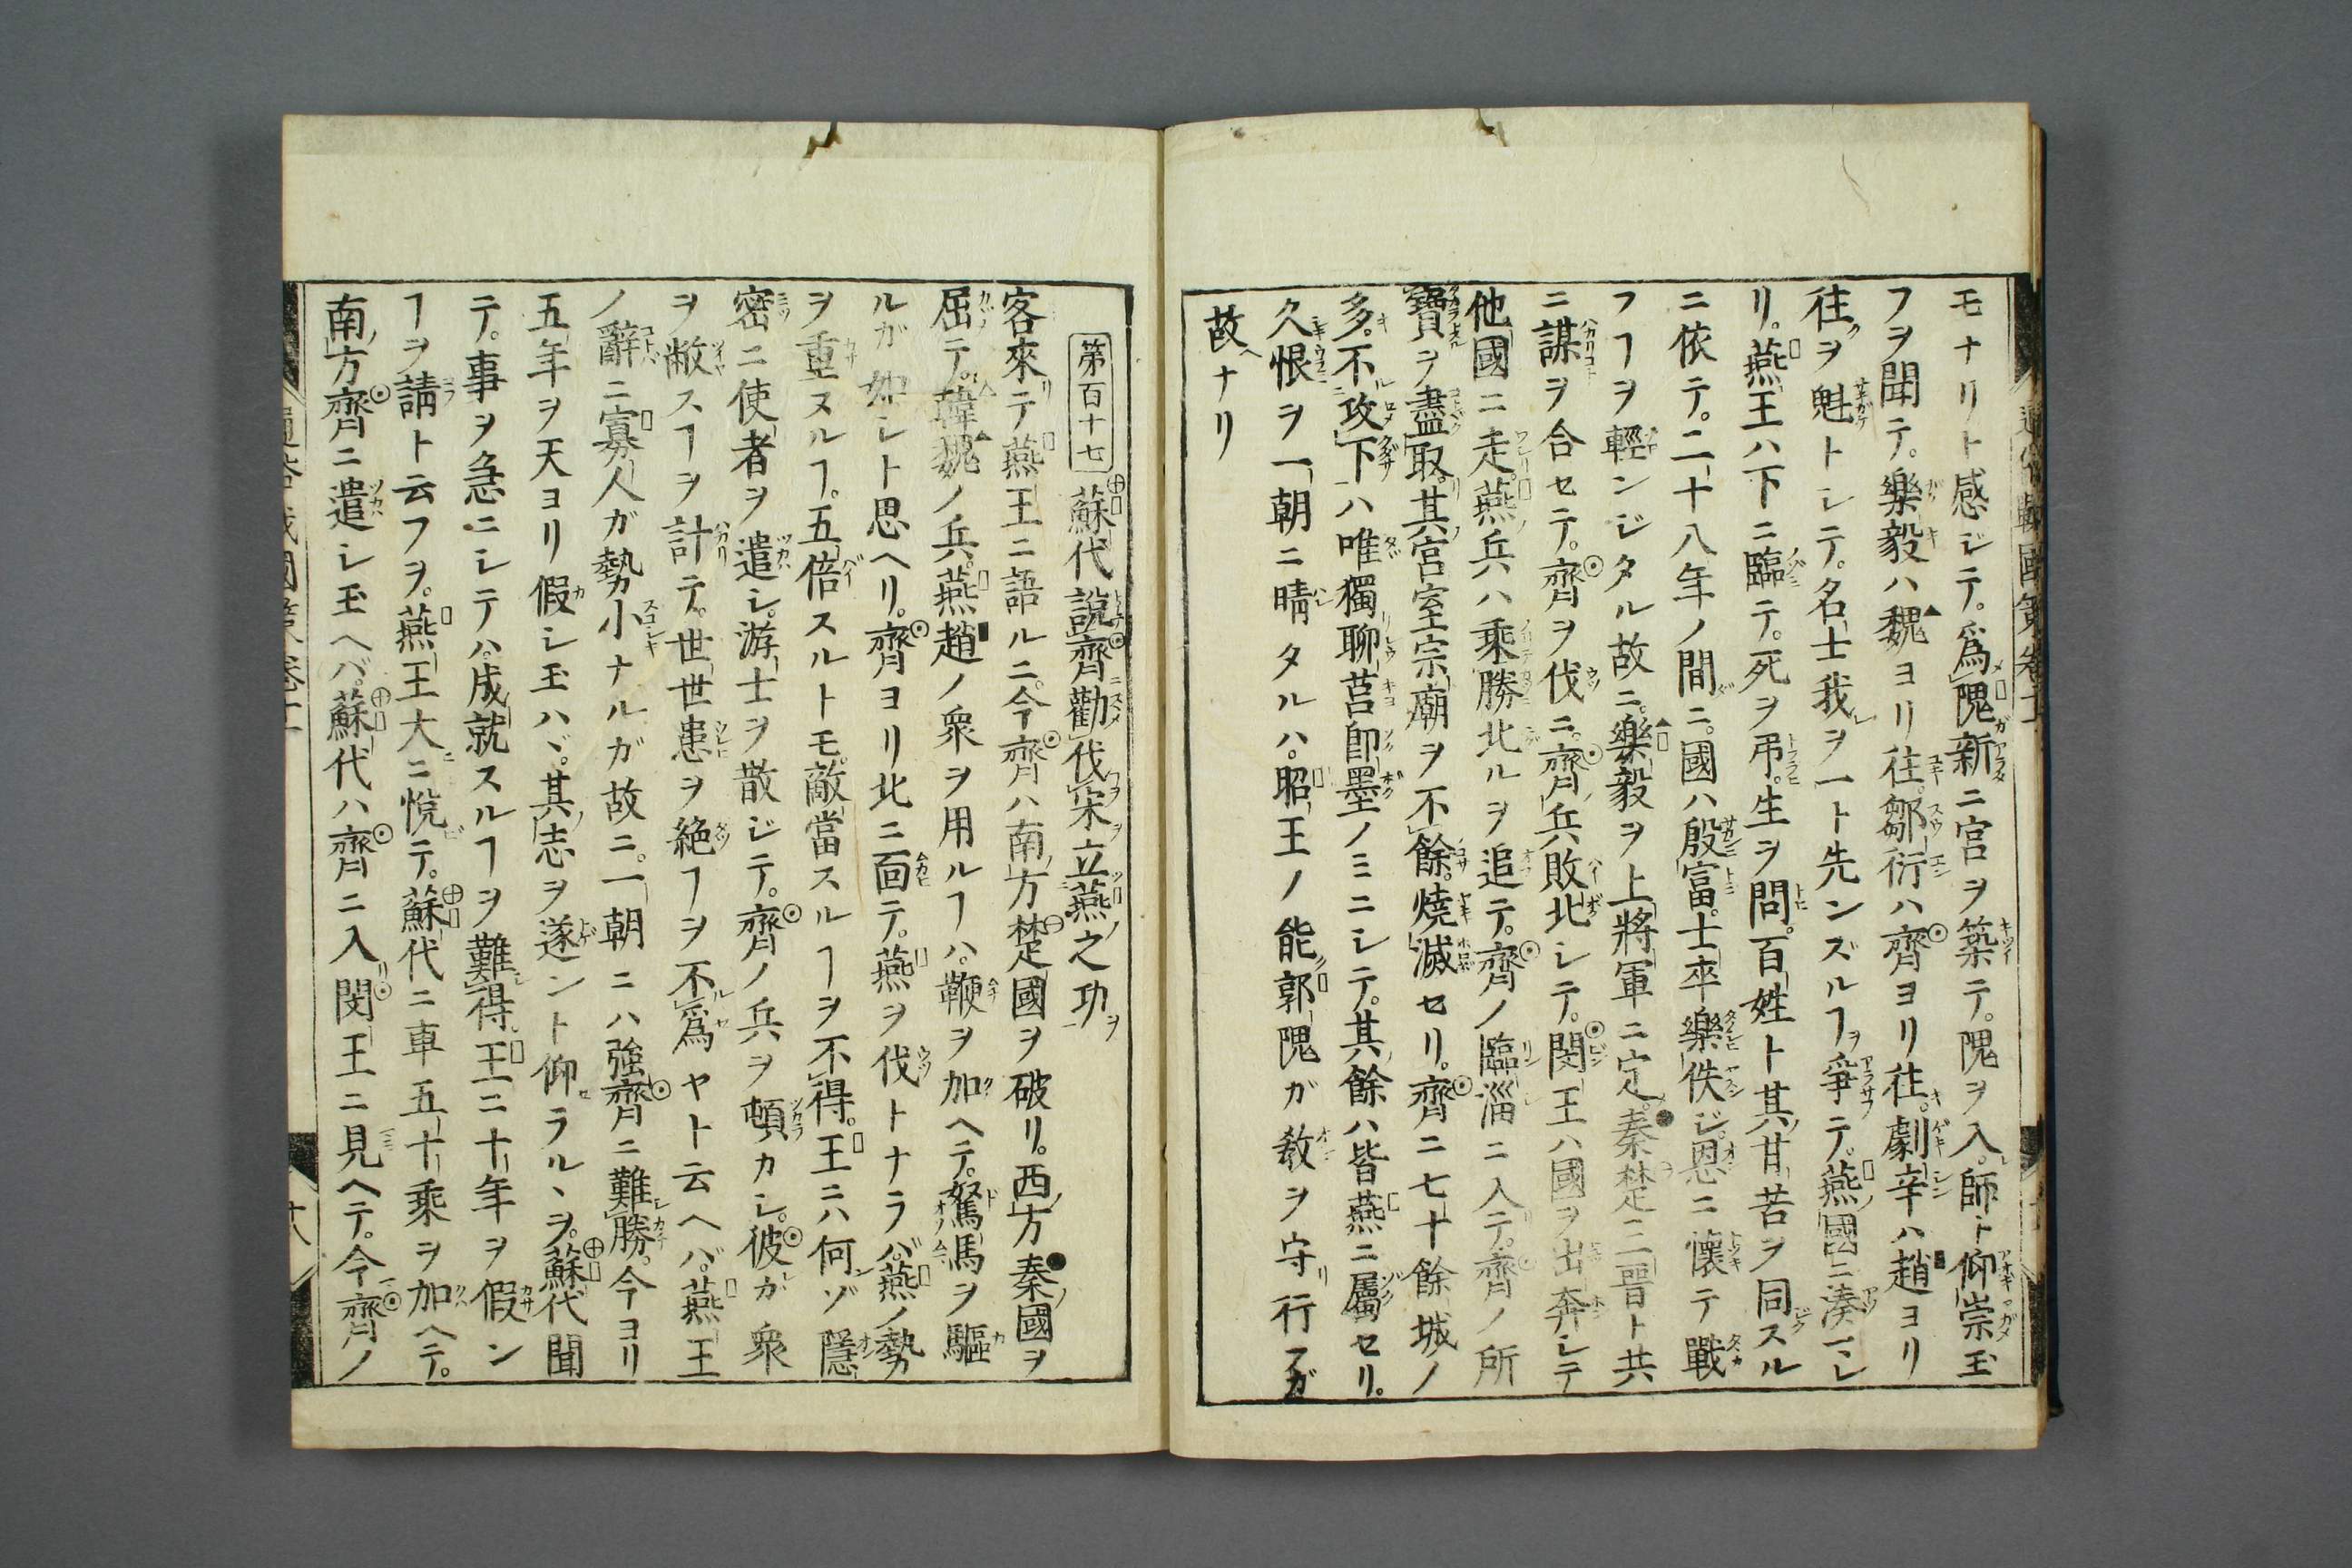 モナリト感ジテ。爲隗新ニ宮ヲ築テ。隗ヲ入。師ト仰崇玉
フヲ聞テ。樂毅ハ魏ヨリ往。鄒衍ハ齊ヨリ往。劇辛ハ趙ヨリ
往ヲ魁トシテ。名士我ヲ一ト先ンズルヿヲ爭テ。燕國ニ湊レ
リ。燕王ハ下ニ臨テ。死ヲ弔。生ヲ問。百姓ト其甘苦ヲ同スル
ニ依テ。二十八年ノ間ニ。國ハ殷富。士卒樂佚シ。恩ニ懷テ戰
フヿヲ輕ンジタル故ニ。樂毅ヲ上將軍ニ定。秦楚三晉ト共
ニ謀ヲ合セテ。齊ヲ伐ニ。齊兵敗北シテ。閔王ハ國ヲ出奔シテ
他國ニ走。燕兵ハ乘勝北ルヲ追テ。齊ノ臨淄ニ入テ。齊ノ所
寶ヲ盡取。其宮室宗廟ヲ不餘。燒滅セリ。齊ニ七十餘城ノ
多。不攻下ハ唯獨聊莒卽墨ノミニシテ。其餘ハ皆燕ニ屬セリ。
久恨ヲ一朝ニ晴タルハ。昭王ノ能郭隗ガ敎ヲ守行フガ
故ナリ
第百十七 蘇代說齊勸伐宋立燕之功
客來テ燕王ニ語ルニ。今齊ハ南方楚國ヲ破リ。西方秦國ヲ
屈テ。韓魏ノ兵。燕趙ノ衆ヲ用ルヿハ。鞭ヲ加ヘテ。駑馬ヲ驅
ルガ如シト思ヘリ。齊ヨリ北ニ面テ。燕ヲ伐トナラバ。燕ノ勢
ヲ重ヌルヿ。五倍スルトモ。敵當スルヿヲ不得。王ニハ何ゾ隱
密ニ使者ヲ遣シ。游士ヲ散ジテ。齊ノ兵ヲ頓カシ。彼カ衆
ヲ敝スヿヲ計テ。世世患ヲ絶ヿヲ不爲ヤト云ヘバ。燕王
ノ辭ニ寡人ガ勢小ナルガ故ニ。一朝ニハ強齊ニ難勝。今ヨリ
五年ヲ天ヨリ假シ玉ハヾ。其志ヲ遂ント仰ラルヽヲ。蘇代聞
テ。事ヲ急ニシテハ。成就スルヿヲ難得。王ニ十年ヲ假ン
ヿヲ請ト云フヲ。燕王大ニ悅テ。蘇代ニ車五十乘ヲ加ヘテ。
南方齊ニ遣シ玉ヘバ。蘇代ハ齊ニ入閔王ニ見ヘテ。今齊ノ